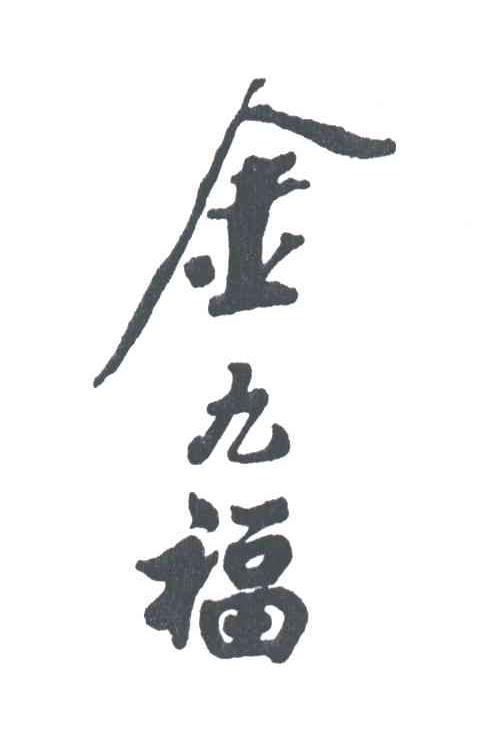 金九福